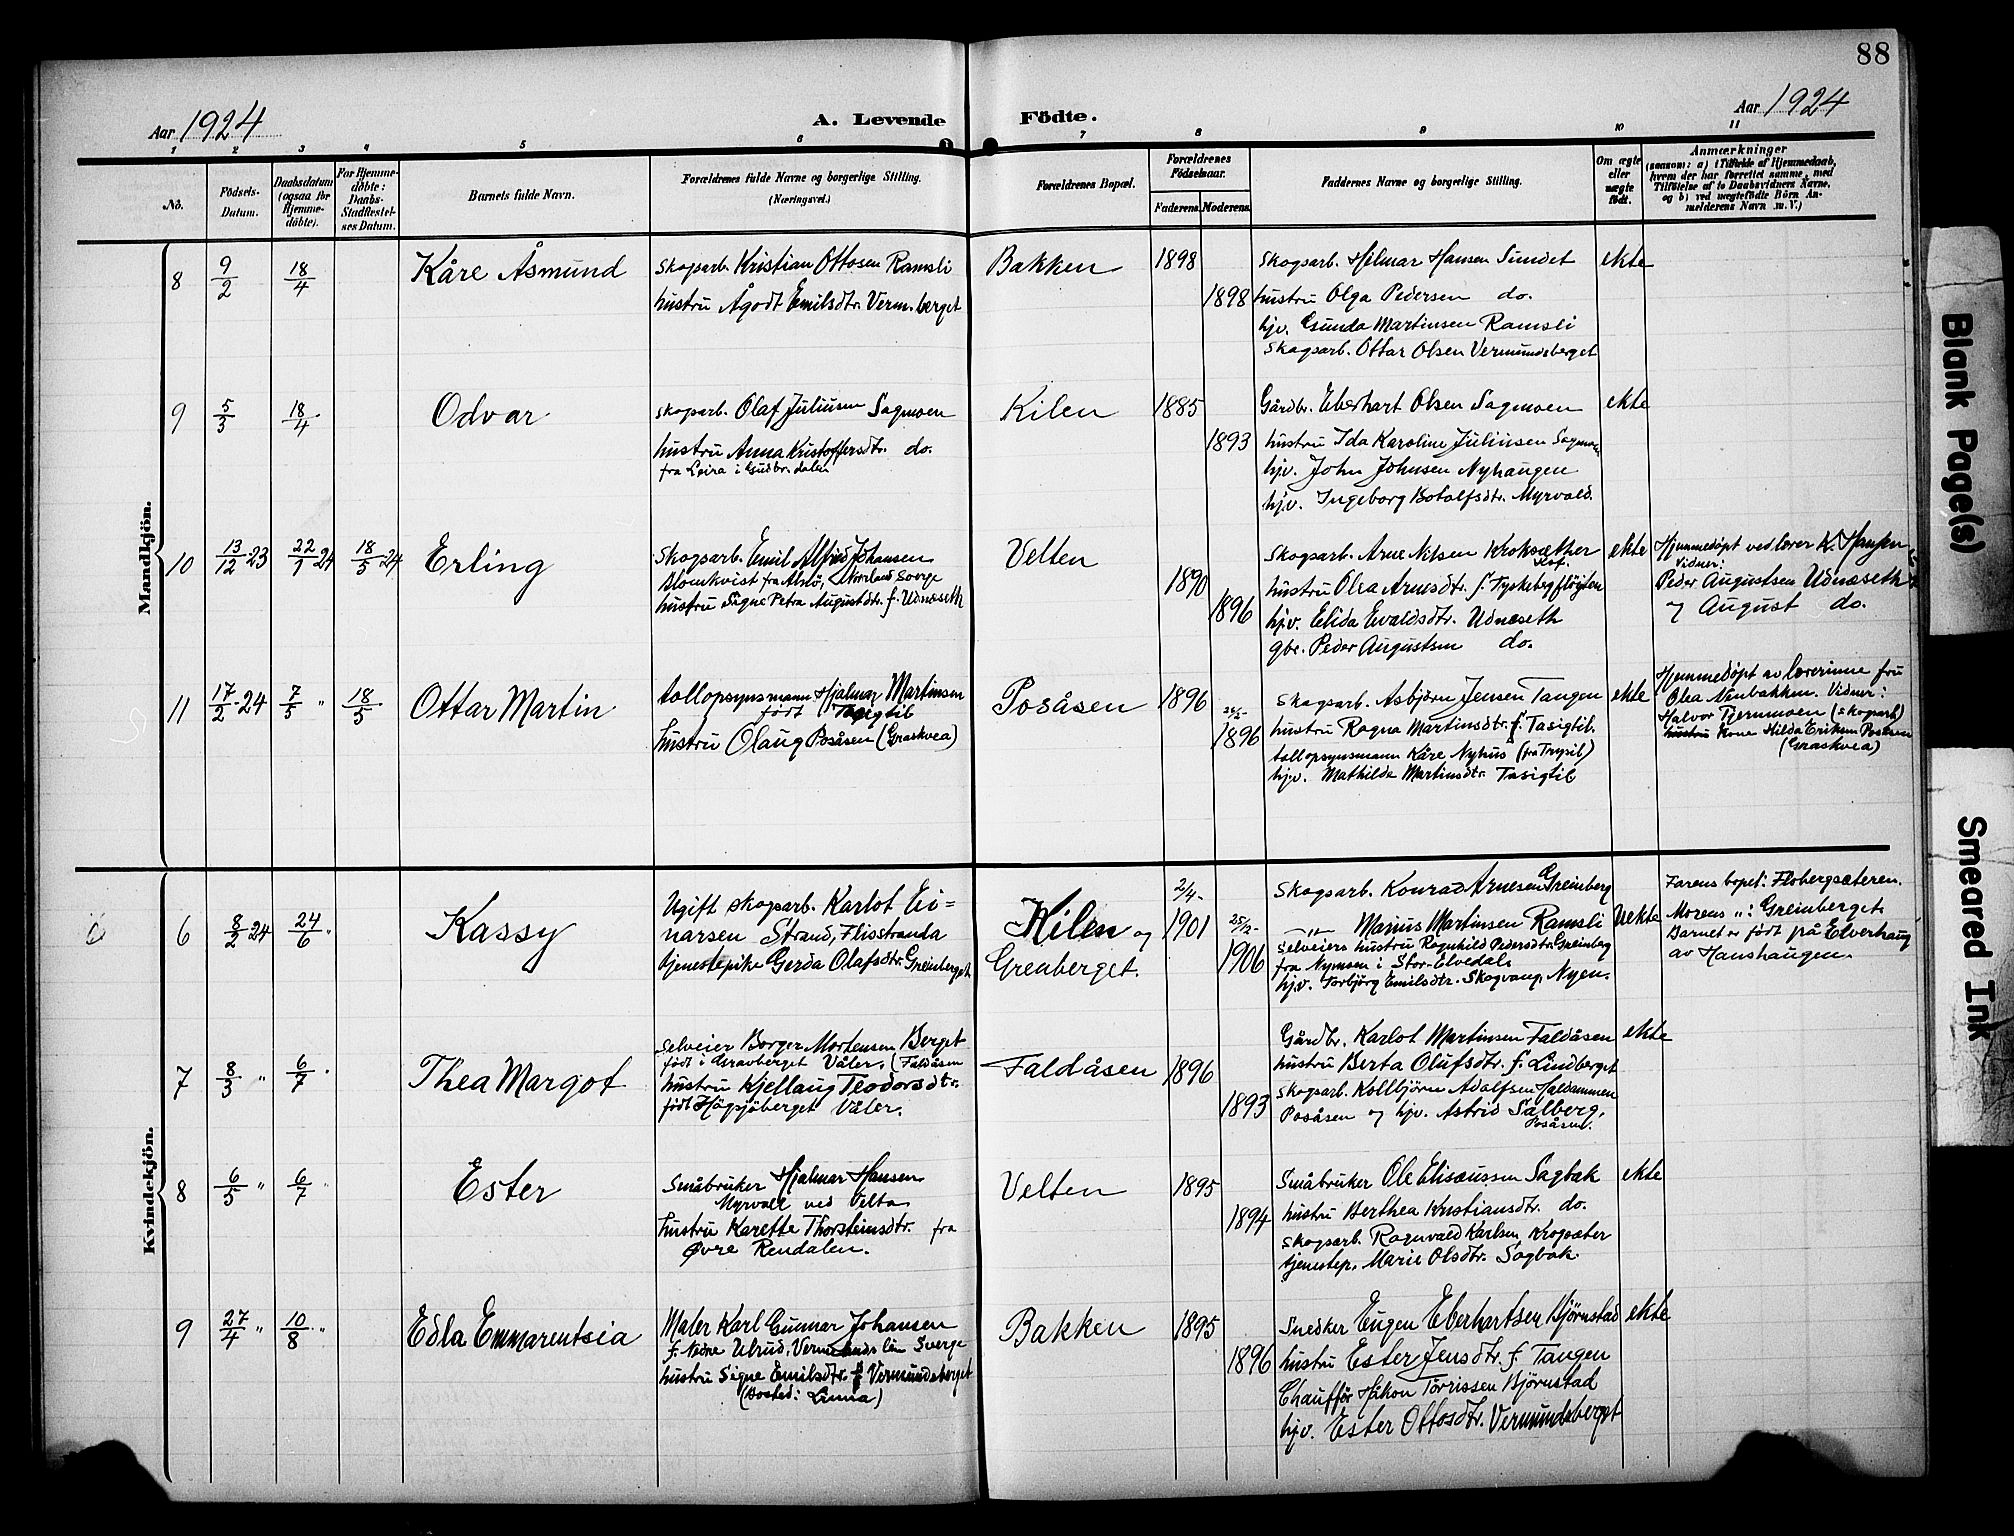 88
Aar 1924
A. Levende Födte.
Aar 1924
1 2 3 4 5 6 7 8 9 10 11
No.
Födsels-Datum.
Daabsdatum (ogsaa for Hjemme-döbte).
For Hjemme-döbte: Daabs-Stadfæstel-ses Datum.
Barnets fulde Navn.
Forældrenes fulde Navne og borgerlige Stilling.
(Næringsvei.)
Forældrenes Bopæl.
Forældrenes Födselsaar.
Faderens. Moderens.
Faddernes Navne og borgerlige Stilling.
Om ægte eller uægte födt.
Anmærkninger
(saasom: a) i Tilfælde af Hjemmedaab,
hvem der har forrettet samme, med
Tilföielse af to Daabsvidners Navne,
og b) ved uægtefödte Börn An-
melderens Navn m. V.)
Mandkjön.
8 9/2 18/4 Kåre Åsmund
Skogsarb. Kristian Ottosen Ramsli
hustru Ågodt Emilsdtr. Verm.berget
Bakken 1898 1898
Skogsarb. Hilmar Hansen Sundet
hustru Olga Pedersen do.
hjv. Gunda Martinsen Ramsli
Skogsarb. Ottar Olsen Vermundsberget
ekte
9 5/3 18/4 Odvar
skogsarb. Olaf Juliusen Sagmoen
hustru Anna Kristoffersdtr. do.
fra Leira i Gudbr.dalen
Kilen 1885 1893
Gårdbr. Eberhart Olsen Sagmoen
hustru Ida Karoline Juliusen Sagmoen
hjv. John Johnsen Nyhaugen
hjv. Ingeborg Botolfsdtr. Myrvold.
ekte
10 13/12-23 22/1 24 18/5-24 Erling
Skogsarb. Emil Alfred Johansen
Blomkvist fra Sverge
hustru Signe Petra Augustdtr. f. Udnæseth
Velten 1890 1896
Skogsarb. Arne Nilsen Kroksæther
hustru Olea Arnesdtr. f. Tyskebergfløyten
hjv. Elida Evaldsdtr. Udnæseth
gbr. Peder Augustsen do.
ekte
Hjemmedøpt ved lærer K. Hansen.
Vidner:
Peder Augustsen Udnæseth
og August do.
11 17/2-24 7/5 " 18/5 Ottar Martin
tollopsynsmann Hjalmar Martinsen
født Tasigtil
hustru Olaug Posåsen (Graskvea)
Posåsen 1896 1896
Skogsarb. Asbjørn Jensen Tangen
hustru Ragna Martinsdtr. f. Tasigtil.
tollopsynsmann Kåre Nyhus (fra Trysil)
hjv. Mathilde Martinsdtr. Tasigtil
ekte
Hjemmedøpt av lærerinne fru
Olea Nenbakken. Vidner:
Halvor Tjernmoen (skogsarb)
hustru Kone Hilda Eriksen Posåsen
(Graskvea)
Kvindekjön.
6 8/2 24 24/6 " Kassy
Ugift skogsarb. Karlot Ei=
narsen Strand, Flisstranda
tjenestepike Gerda Olafsdtr. Greinberget
Kilen og
Grenberget.
2/4-1901 25/12-1906
Skogsarb. Konrad Arnesen Greinberg
—"— Marius Martinsen Ramsli
Selveiers hustru Ragnhild Pedersdtr. Greinberg
fra Nymoen i Stor-Elvedal.
hjv. Torbjørg Emilsdtr. Skogvang, Nyen.
Uekte
Farens bopel: Flobergsæteren.
Morens ": Greinberget.
Barnet er født på Elverhaug
av Hanshaugen.
7 8/3 " 6/7 " Thea Margot
Selveier Borger Mortensen Berget
født i Gravberget Våler. (Faldåsen
hustru Kjellaug Teodorsdtr.
født Høgsjøberget Våler.
Faldåsen 1896 1893
Gårdbr. Karlot Martinsen Faldåsen
hustru Berta Olufsdtr. f. Lindberget
skogsarb. Kolbjörn Adolfsen Haldammen
Posåsen og hjv. Astrid Salberg,
Posåsen.
ekte
8 6/5 " 6/7 " Ester
Småbruker Hjalmar Hansen
Myrvold ved Velta
hustru Karette Thorsteinsdtr. fra
Øvre Rendalen.
Velten 1895 1894
Småbruker Ole Elisæussen Sagbak
hustru Berthea Kristiansdtr. do.
skogsarb. Ragnvald Karlsen Krogsæter
tjenestep. Marie Olsdtr. Sagbak.
ekte
9 27/4 " 10/8 " Edla Emmarentsia
Maler Karl Gunnar Johansen
f. Nedre Ulrud, Vermlands län Sverge
hustru Signe Emilsdtr. f. Vermundsberget
(Bosted: Linna)
Bakken 1895 1896
Snedker Eugen Eberhartsen Bjørnstad
hustru Ester Jensdtr. f. Tangen
Chauffør Håkon Torrissen Bjørnstad
hjv. Ester Ottosdtr. Vermundsberget
ekte
Blank Page(s)
Smeared Ink